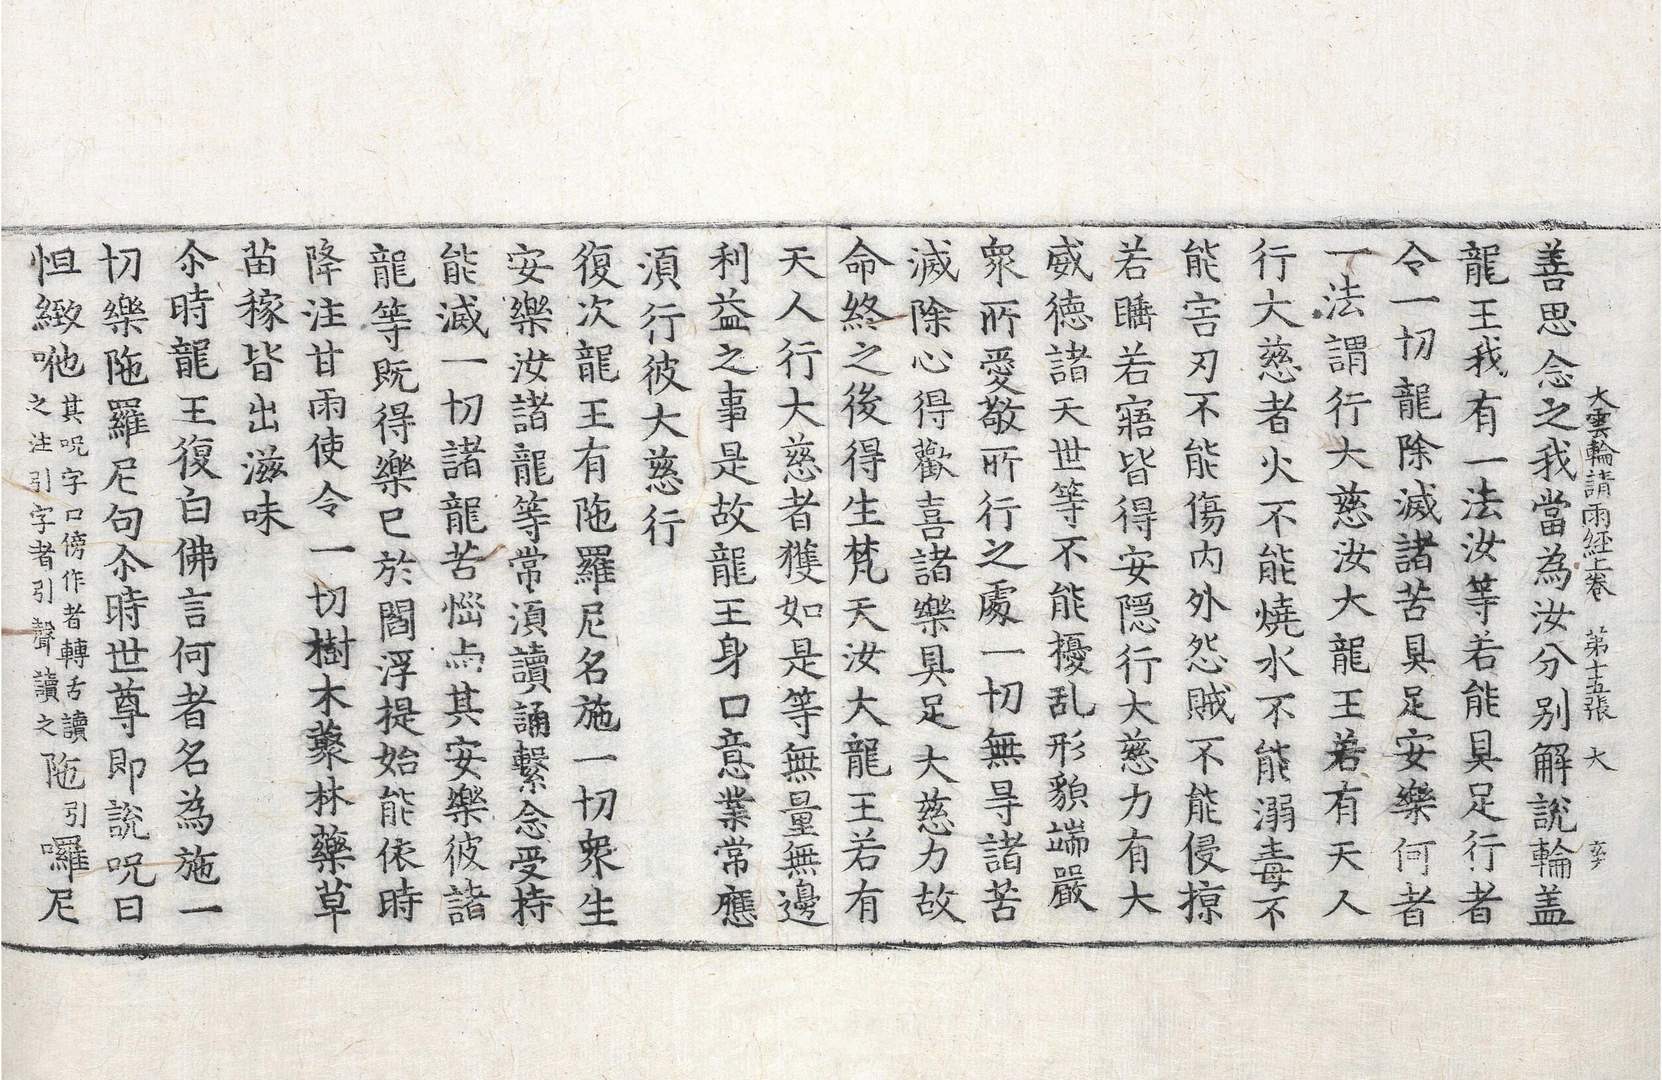 大雲輪請雨經上卷 第十五張 大
善思念之我當為汝分別解說輪盖
龍王我有一法汝等若能具足行者
令一切龍除滅諸苦具足安樂何者
一法謂行大慈汝大龍王若有天人
行大慈者火不能燒水不能溺毒不
能害刃不能傷内外怨賊不能侵掠
若睡若寤皆得安隱行大慈力有大
威德諸天世等不能擾乱形貌端嚴
衆所愛敬所行之處一切無㝵諸苦
滅除心得歡喜諸樂具足大慈力故
命終之後得生梵天汝大龍王若有
天人行大慈者獲如是等無量無邊
利益之事是故龍王身口意業常應
湏行彼大慈行
復次龍王有陁羅尼名施一切衆生
安樂汝諸龍等常湏讀誦繫念受持
能滅一切諸龍苦惱与其安樂彼諸
龍等既得樂已於閻浮提始能依時
降注甘雨使令一切樹木藂林藥草
苗稼皆出滋味
尒時龍王復白佛言何者名為施一
切樂陁羅尼句尒時世尊即說呪曰
怛緻咃其呪字口傍作者轉舌讀之注引字者引聲讀之陁引囉尼